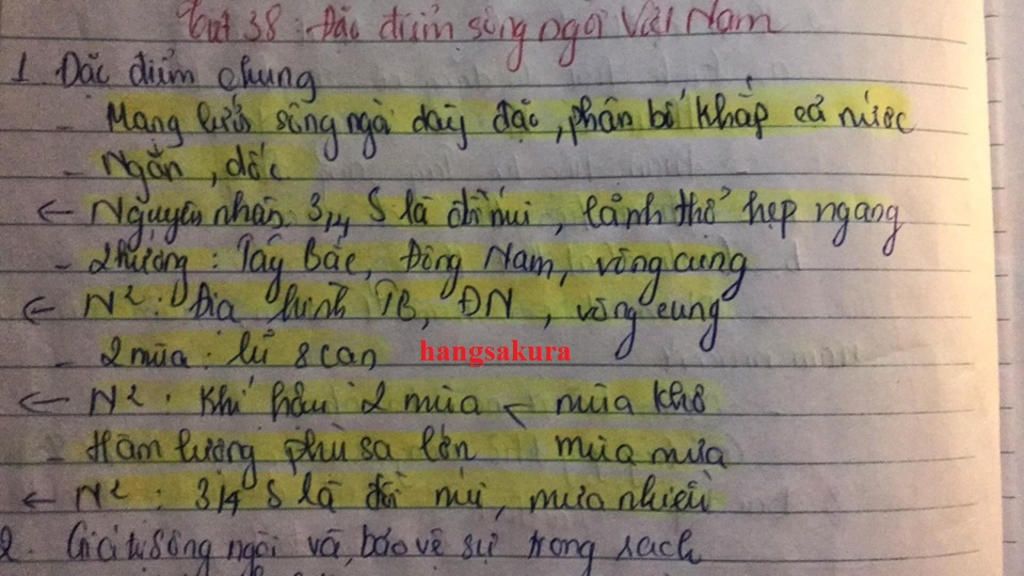 Tiết 38: Đặc điểm sông ngòi Việt Nam
1 Đặc điểm chung
- Mạng lưới sông ngòi dày đặc, phân bố khắp cả nước
- Ngắn, dốc
← Nguyên nhân 3/4 S là đồi núi, lãnh thổ hẹp ngang
- 2 hướng: Tây Bắc, Đông Nam, vòng cung
← N²: Địa hình TB, ĐN, vòng cung
- 2 mùa: lũ & cạn
hangsakura
← N²: Khí hậu 2 mùa < mùa khô
mùa mưa
- Hàm lượng phù sa lớn
← N²: 3/4 S là đồi núi, mưa nhiều
2. Giá trị sông ngòi và bảo vệ sự trong sạch